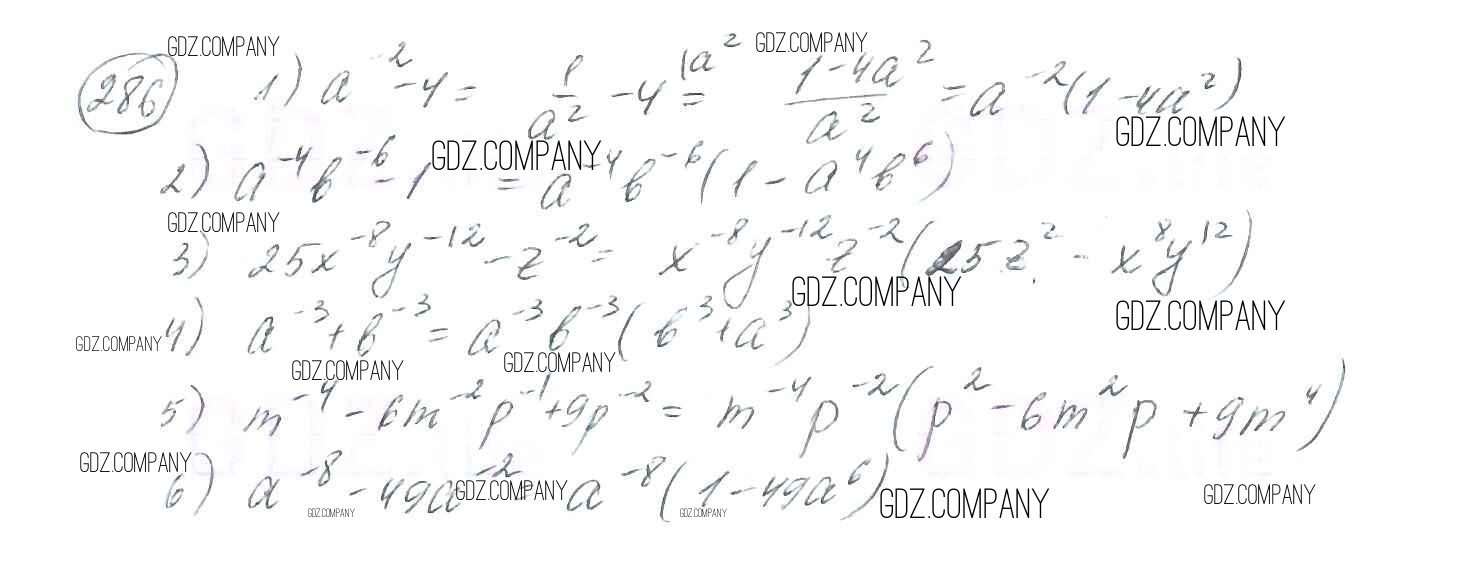 GDZ.COMPANY GDZ.COMPANY
286 1) a⁻² - 4 = 1/a² - 4 |a² = (1 - 4a²)/a² = a⁻²(1 - 4a²)
GDZ.COMPANY GDZ.COMPANY
2) a⁻⁴b⁻⁶ - 1 = a⁻⁴b⁻⁶(1 - a⁴b⁶)
GDZ.COMPANY
3) 25x⁻⁸y⁻¹² - z⁻² = x⁻⁸y⁻¹²z⁻²(25z² - x⁸y¹²)
GDZ.COMPANY GDZ.COMPANY
4) a⁻³ + b⁻³ = a⁻³b⁻³(b³ + a³)
GDZ.COMPANY GDZ.COMPANY GDZ.COMPANY
5) m⁻⁴ - 6m⁻²p⁻¹ + 9p⁻² = m⁻⁴p⁻²(p² - 6m²p + 9m⁴)
GDZ.COMPANY
6) a⁻⁸ - 49a⁻² = a⁻⁸(1 - 49a⁶)
GDZ.COMPANY GDZ.COMPANY GDZ.COMPANY
GDZ.COMPANY GDZ.COMPANY